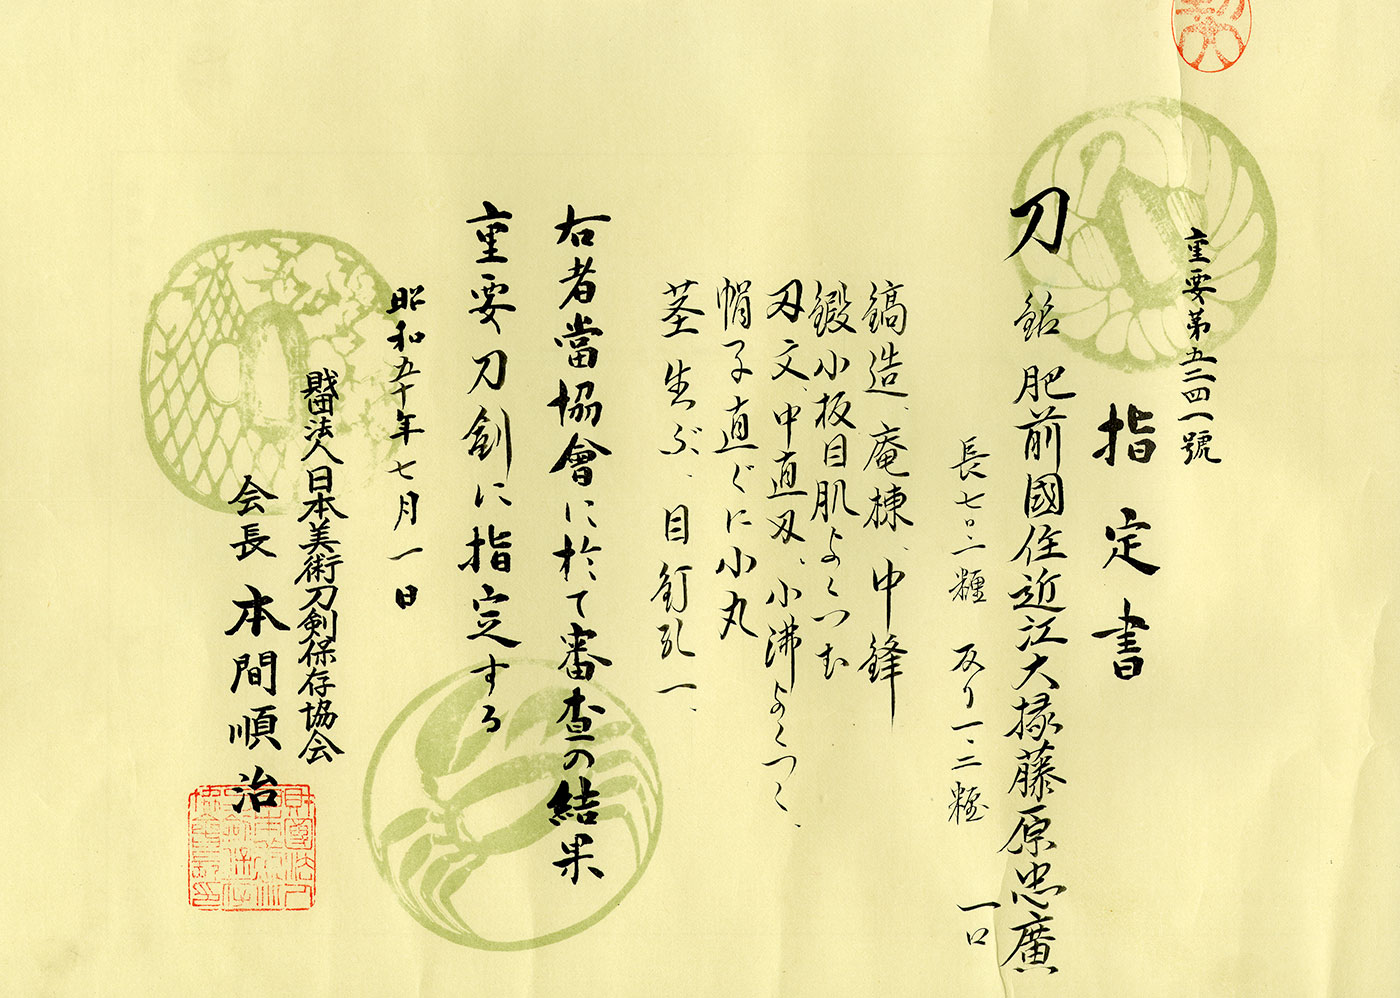 重要第五二四一號
指定書
刀 銘 肥前國住近江大掾藤原忠廣
長七〇・二糎 反り一・二糎 一口
鎬造、庵棟、中鋒
鍛小板目肌よくつむ
刃文、中直刃、小沸よくつく、
帽子直ぐに小丸
茎生ぶ、目釘孔一、
右者當協會に於て審査の結果
重要刀剣に指定する
昭和五十年七月一日
財団法人日本美術刀剣保存協会
会長 本間順治